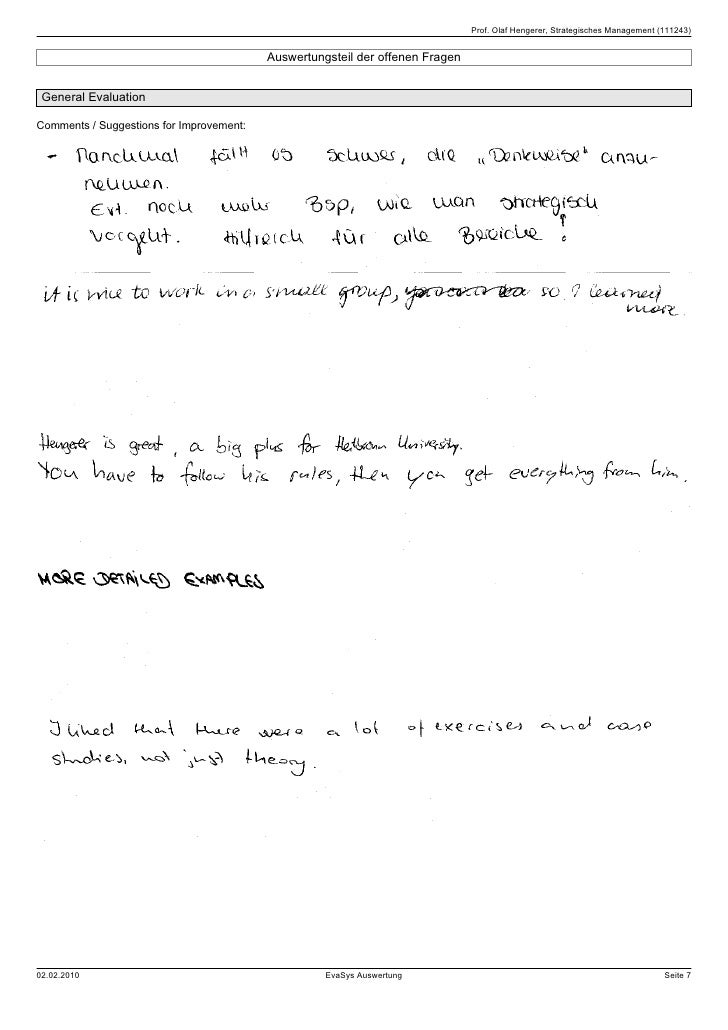 Prof. Olaf Hengerer, Strategisches Management (111243)
Auswertungsteil der offenen Fragen
General Evaluation
Comments / Suggestions for Improvement:
- Manchmal fällt es schwer, die „Denkweise“ anzu-
nehmen.
Evt. noch mehr Bsp, wie man strategisch
vorgeht. Hilfreich für alle Bereiche!
it is nice to work in a small group, so I learned
more.
Hengerer is great, a big plus for Heilbronn University.
You have to follow his rules, then you get everything from him.
MORE DETAILED EXAMPLES
I liked that there were a lot of exercises and case
studies, not just theory.
02.02.2010
EvaSys Auswertung
Seite 7